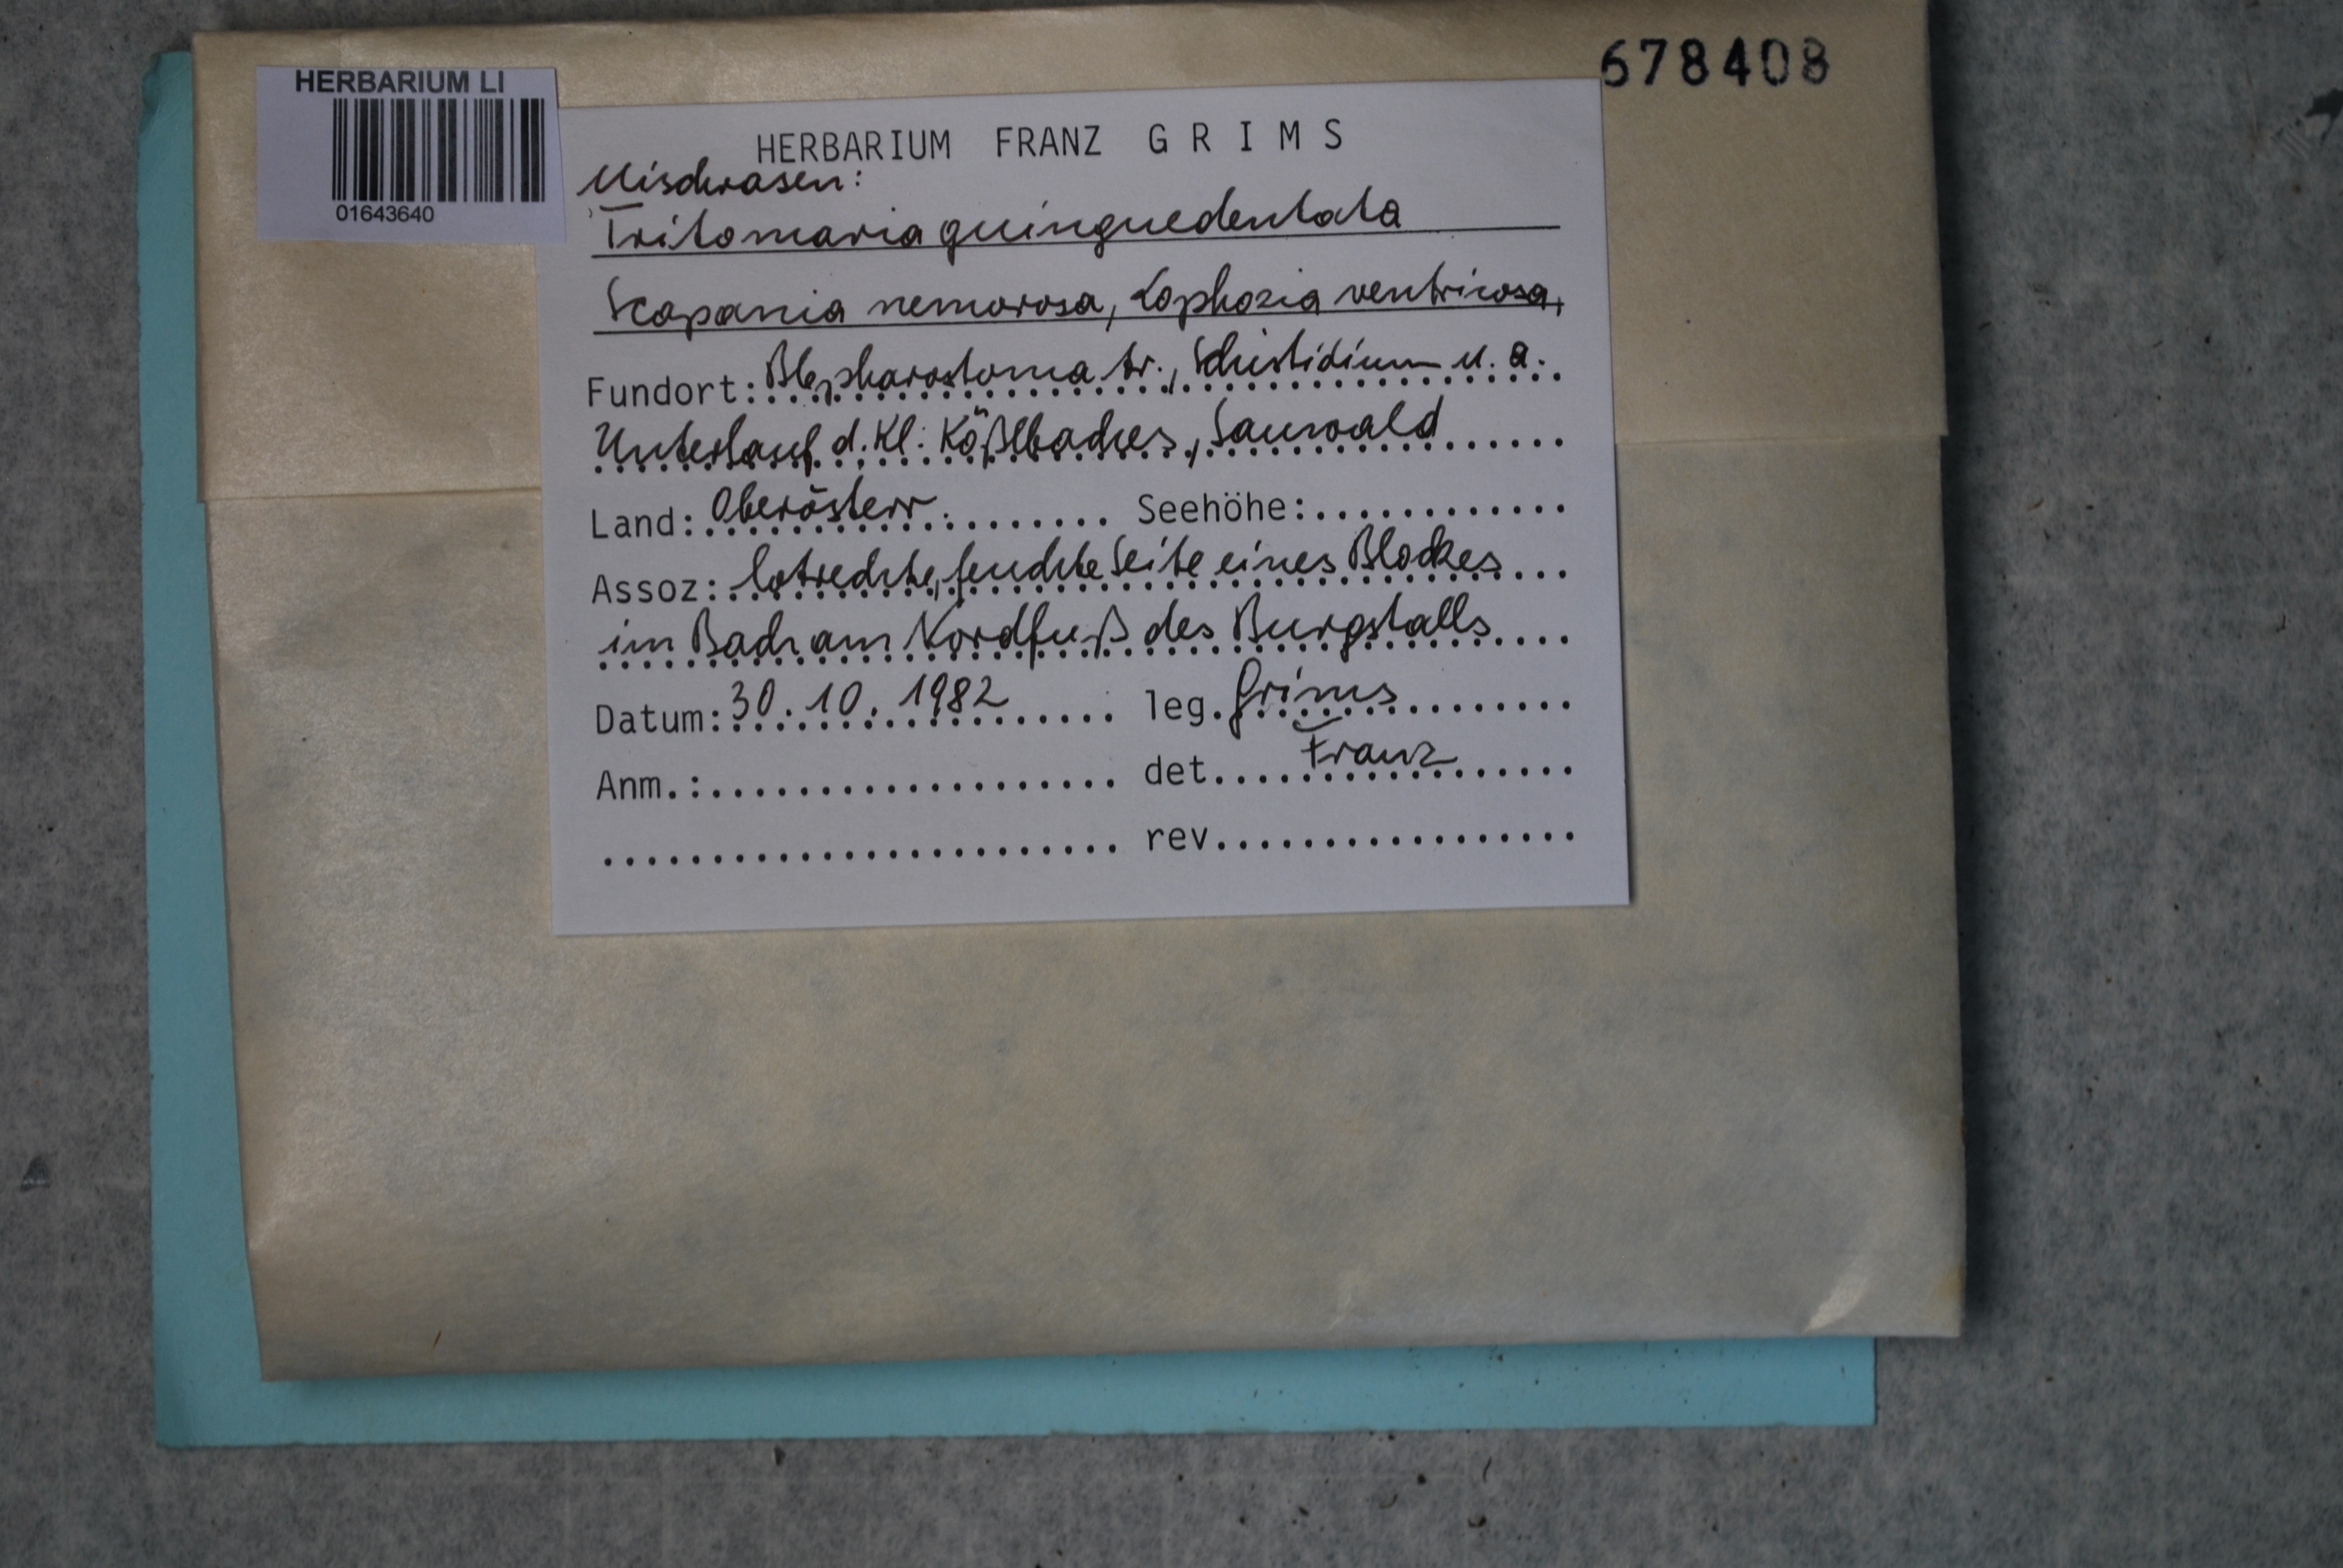 678408
HERBARIUM LI
01643640
HERBARIUM FRANZ GRIMS
Mischrasen:
Tritomaria quinquedentata
Scapania nemorosa, Lophozia ventricosa,
Fundort: Blepharostoma tr., Schistidium u. a.
Unterlauf d. Kl. Kößlbaches, Sauwald
Land: Oberösterr. Seehöhe:
Assoz: lotrechte, feuchte Seite eines Blockes
im Bach am Nordfuß des Burgstalls
Datum: 30.10.1982 leg. Grims
Anm.: det. Franz
rev.